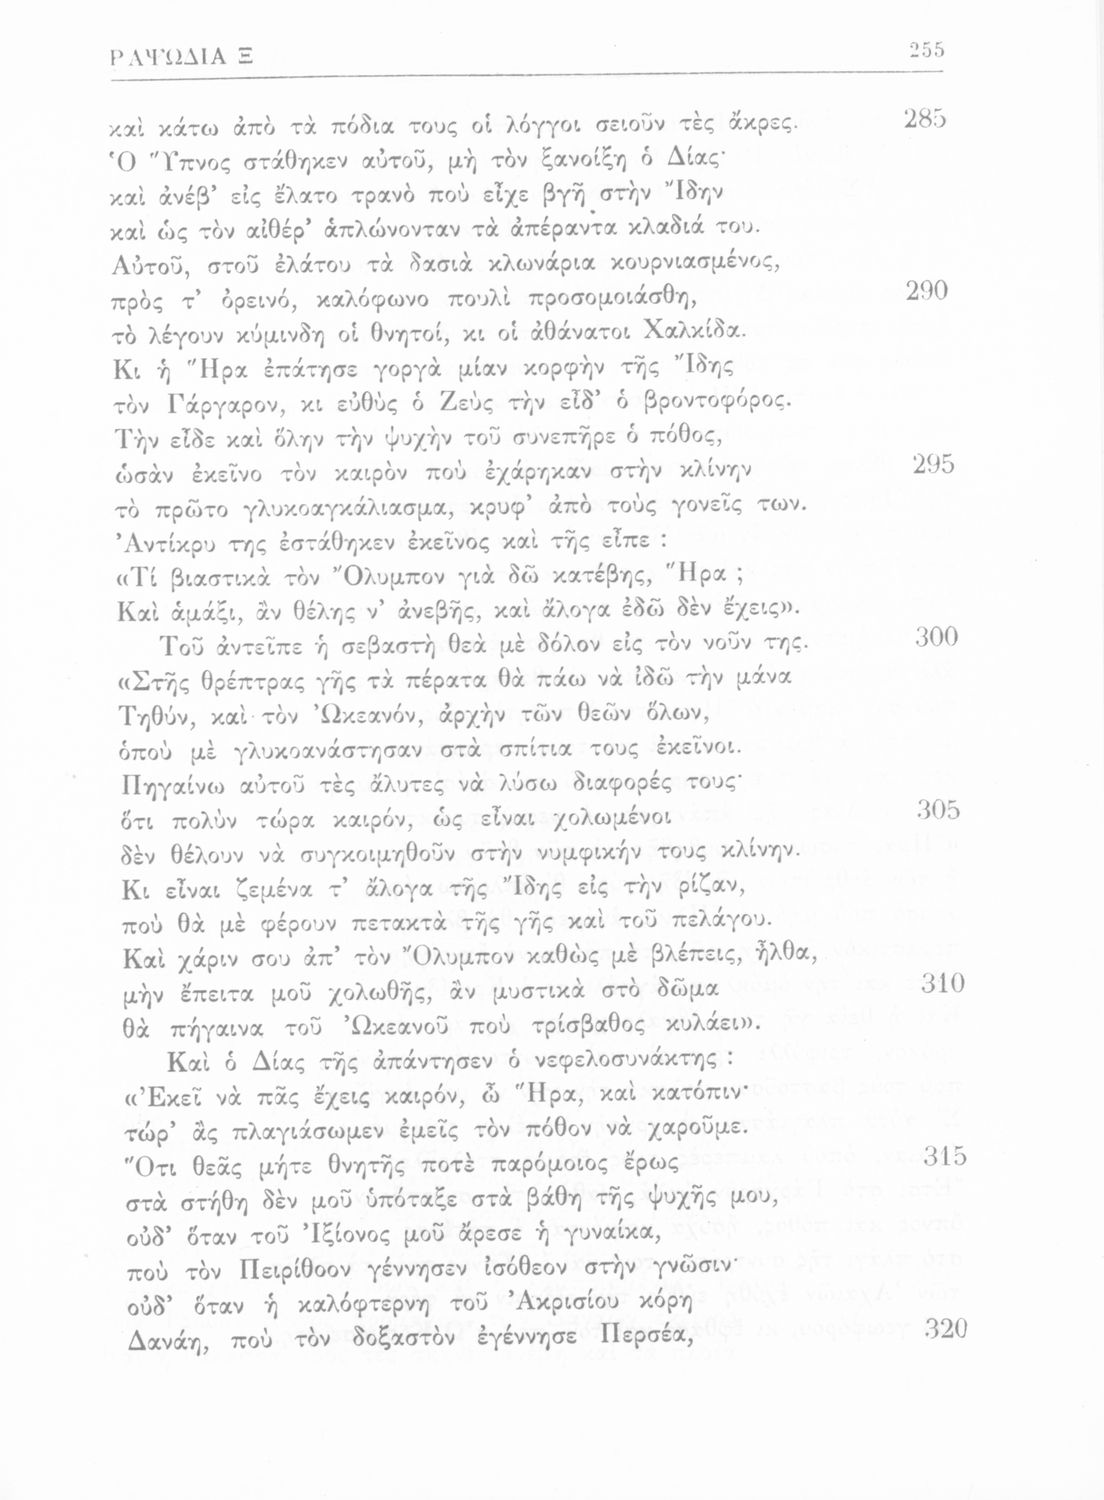 ΡΑΨΩΔΙΑ Ξ 255
καὶ κάτω ἀπὸ τὰ πόδια τους οἱ λόγγοι σειοῦν τὲς ἄκρες. 285
Ὁ Ὕπνος στάθηκεν αὐτοῦ, μὴ τὸν ξανοίξῃ ὁ Δίας·
καὶ ἀνέβ’ εἰς ἔλατο τρανὸ ποὺ εἶχε βγῆ στὴν Ἴδην
καὶ ὡς τὸν αἰθέρ’ ἁπλώνονταν τὰ ἀπέραντα κλαδιά του.
Αὐτοῦ, στοῦ ἐλάτου τὰ δασιὰ κλωνάρια κουρνιασμένος,
πρὸς τ’ ὀρεινό, καλόφωνο πουλὶ προσομοιάσθη, 290
τὸ λέγουν κύμινδη οἱ θνητοί, κι οἱ ἀθάνατοι Χαλκίδα.
Κι ἡ Ἥρα ἐπάτησε γοργὰ μίαν κορφὴν τῆς Ἴδης
τὸν Γάργαρον, κι εὐθὺς ὁ Ζεὺς τὴν εἶδ’ ὁ βροντοφόρος.
Τὴν εἶδε καὶ ὅλην τὴν ψυχὴν τοῦ συνεπῆρε ὁ πόθος,
ὡσὰν ἐκεῖνο τὸν καιρὸν ποὺ ἐχάρηκαν στὴν κλίνην 295
τὸ πρῶτο γλυκοαγκάλιασμα, κρυφ’ ἀπὸ τοὺς γονεῖς των.
Ἀντίκρυ της ἐστάθηκεν ἐκεῖνος καὶ τῆς εἶπε :
«Τί βιαστικὰ τὸν Ὄλυμπον γιὰ δῶ κατέβης, Ἥρα ;
Καὶ ἁμάξι, ἂν θέλης ν’ ἀνεβῆς, καὶ ἄλογα ἐδῶ δὲν ἔχεις».
Τοῦ ἀντεῖπε ἡ σεβαστὴ θεὰ μὲ δόλον εἰς τὸν νοῦν της. 300
«Στῆς θρέπτρας γῆς τὰ πέρατα θὰ πάω νὰ ἰδῶ τὴν μάνα
Τηθύν, καὶ τὸν Ὠκεανόν, ἀρχὴν τῶν θεῶν ὅλων,
ὁποὺ μὲ γλυκοανάστησαν στὰ σπίτια τους ἐκεῖνοι.
Πηγαίνω αὐτοῦ τὲς ἄλυτες νὰ λύσω διαφορές τους·
ὅτι πολὺν τώρα καιρόν, ὡς εἶναι χολωμένοι 305
δὲν θέλουν νὰ συγκοιμηθοῦν στὴν νυμφικήν τους κλίνην.
Κι εἶναι ζεμένα τ’ ἄλογα τῆς Ἴδης εἰς τὴν ρίζαν,
ποὺ θὰ μὲ φέρουν πετακτὰ τῆς γῆς καὶ τοῦ πελάγου.
Καὶ χάριν σου ἀπ’ τὸν Ὄλυμπον καθὼς μὲ βλέπεις, ἦλθα,
μὴν ἔπειτα μοῦ χολωθῆς, ἂν μυστικὰ στὸ δῶμα 310
θὰ πήγαινα τοῦ Ὠκεανοῦ ποὺ τρίσβαθος κυλάει».
Καὶ ὁ Δίας τῆς ἀπάντησεν ὁ νεφελοσυνάκτης :
«Ἐκεῖ νὰ πᾶς ἔχεις καιρόν, ὦ Ἥρα, καὶ κατόπιν·
τώρ’ ἂς πλαγιάσωμεν ἐμεῖς τὸν πόθον νὰ χαροῦμε.
Ὅτι θεᾶς μήτε θνητῆς ποτὲ παρόμοιος ἔρως 315
στὰ στήθη δὲν μοῦ ὑπόταξε στὰ βάθη τῆς ψυχῆς μου,
οὐδ’ ὅταν τοῦ Ἰξίονος μοῦ ἄρεσε ἡ γυναίκα,
ποὺ τὸν Πειρίθοον γέννησεν ἰσόθεον στὴν γνῶσιν·
οὐδ’ ὅταν ἡ καλόφτερνη τοῦ Ἀκρισίου κόρη
Δανάη, ποὺ τὸν δοξαστὸν ἐγέννησε Περσέα, 320